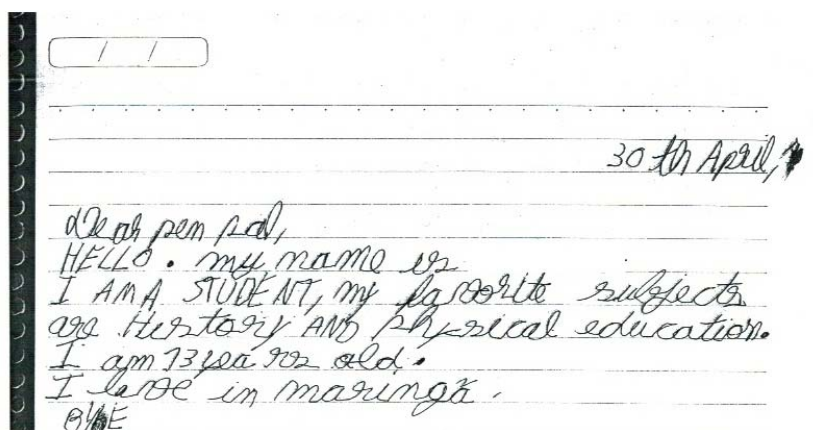 / /
30 th April,
Dear pen pal,
HELLO. my name is
I AM A STUDENT, my favorite subjects
are History AND Physical education.
I am 13 years old.
I live in maringá.
BYE